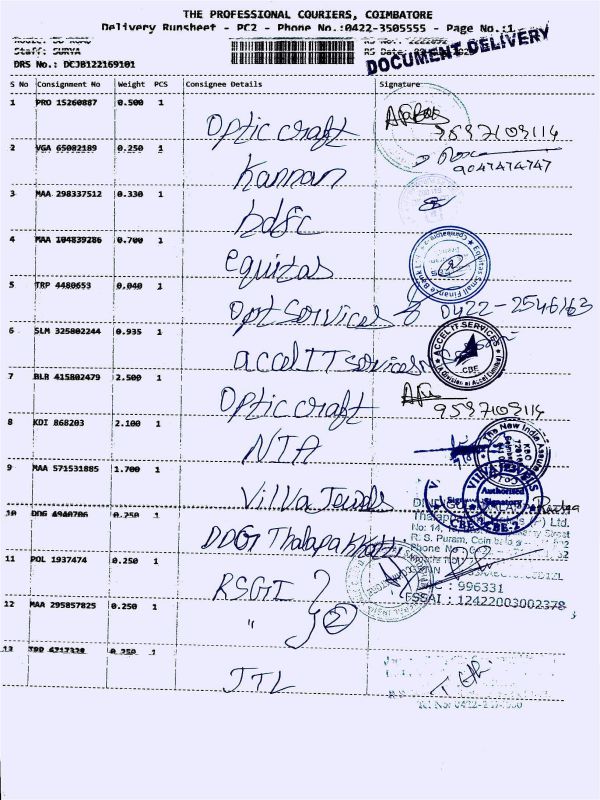 THE PROFESSIONAL COURIERS, COIMBATORE
Delivery Runsheet - PC2 - Phone No.:0422-3505555 - Page No.:1
Staff: SURYA
DOCUMENT DELIVERY
DRS No.: DCJB122169101
S No Consignment No Weight PCS Consignee Details Signature
1 PRO 15260887 0.500 1 Optic craft 9597109114
2 VGA 65082189 0.250 1 Kannan 9047474747
3 MAA 298337512 0.330 1 hdfc
4 MAA 104839286 0.700 1 equitas
Equitas Small Finance Bank
5 TRP 4480653 0.040 1 Opt Services 0422-2546163
6 SLM 325802244 0.935 1 accel IT services
ACCEL IT SERVICES
(A Division of Accel Limited)
CBE
7 BLR 415802479 2.500 1 Optic craft 9597109114
8 KDI 868203 2.100 1 NIA
The New India
9 MAA 571531885 1.700 1 Vilva Jewels
VILVA JEWELS
Authorised Signatory
CBE-2
10 DDG 4940706 0.250 1 DDG Thalapakatti
R. S. Puram,
11 POL 1937474 0.250 1 RSGI
996331
FSSAI : 12422003002378
12 MAA 295857825 0.250 1 " 2
13 TRP 4717328 0.250 1 JTL